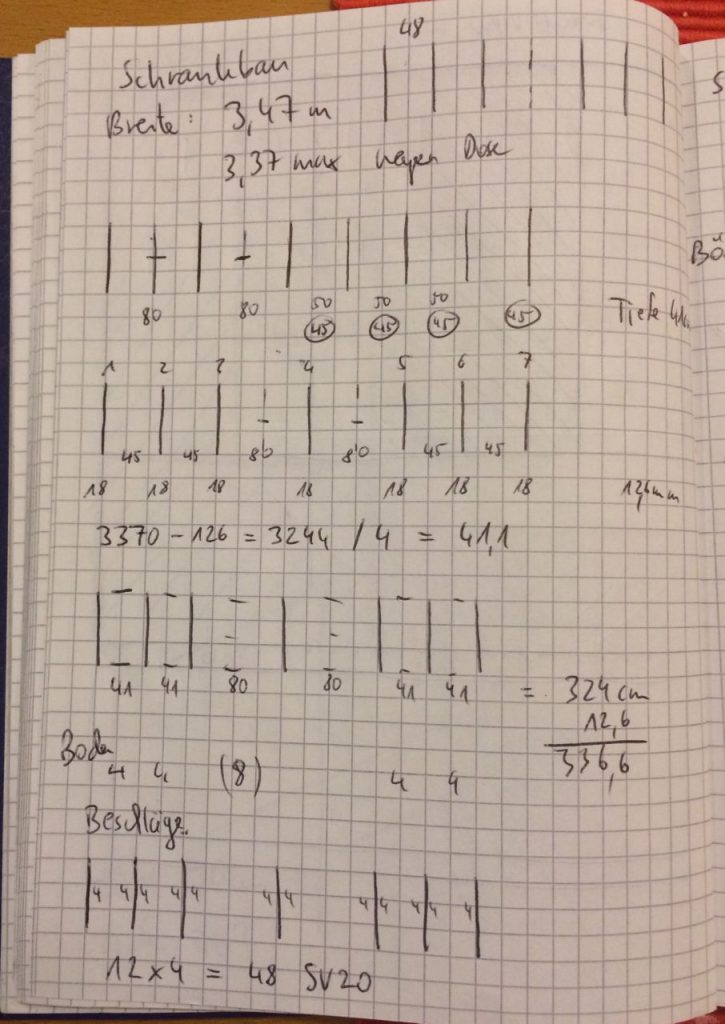 48
Schrankbau
Breite: 3,47 m
3,37 max wegen Dose
80 80 50 50 50
45 45 45 45
Tiefe 41cm
1 2 3 4 5 6 7
45 45 80 80 45 45
18 18 18 18 18 18 18 126mm
3370 - 126 = 3244 / 4 = 41,1
41 41 80 80 41 41 = 324 cm
12,6
336,6
Böden
4 4 (8) 4 4
Beschläge
4 4 4 4 4 4 4 4 4 4 4 4
12 x 4 = 48 SV20